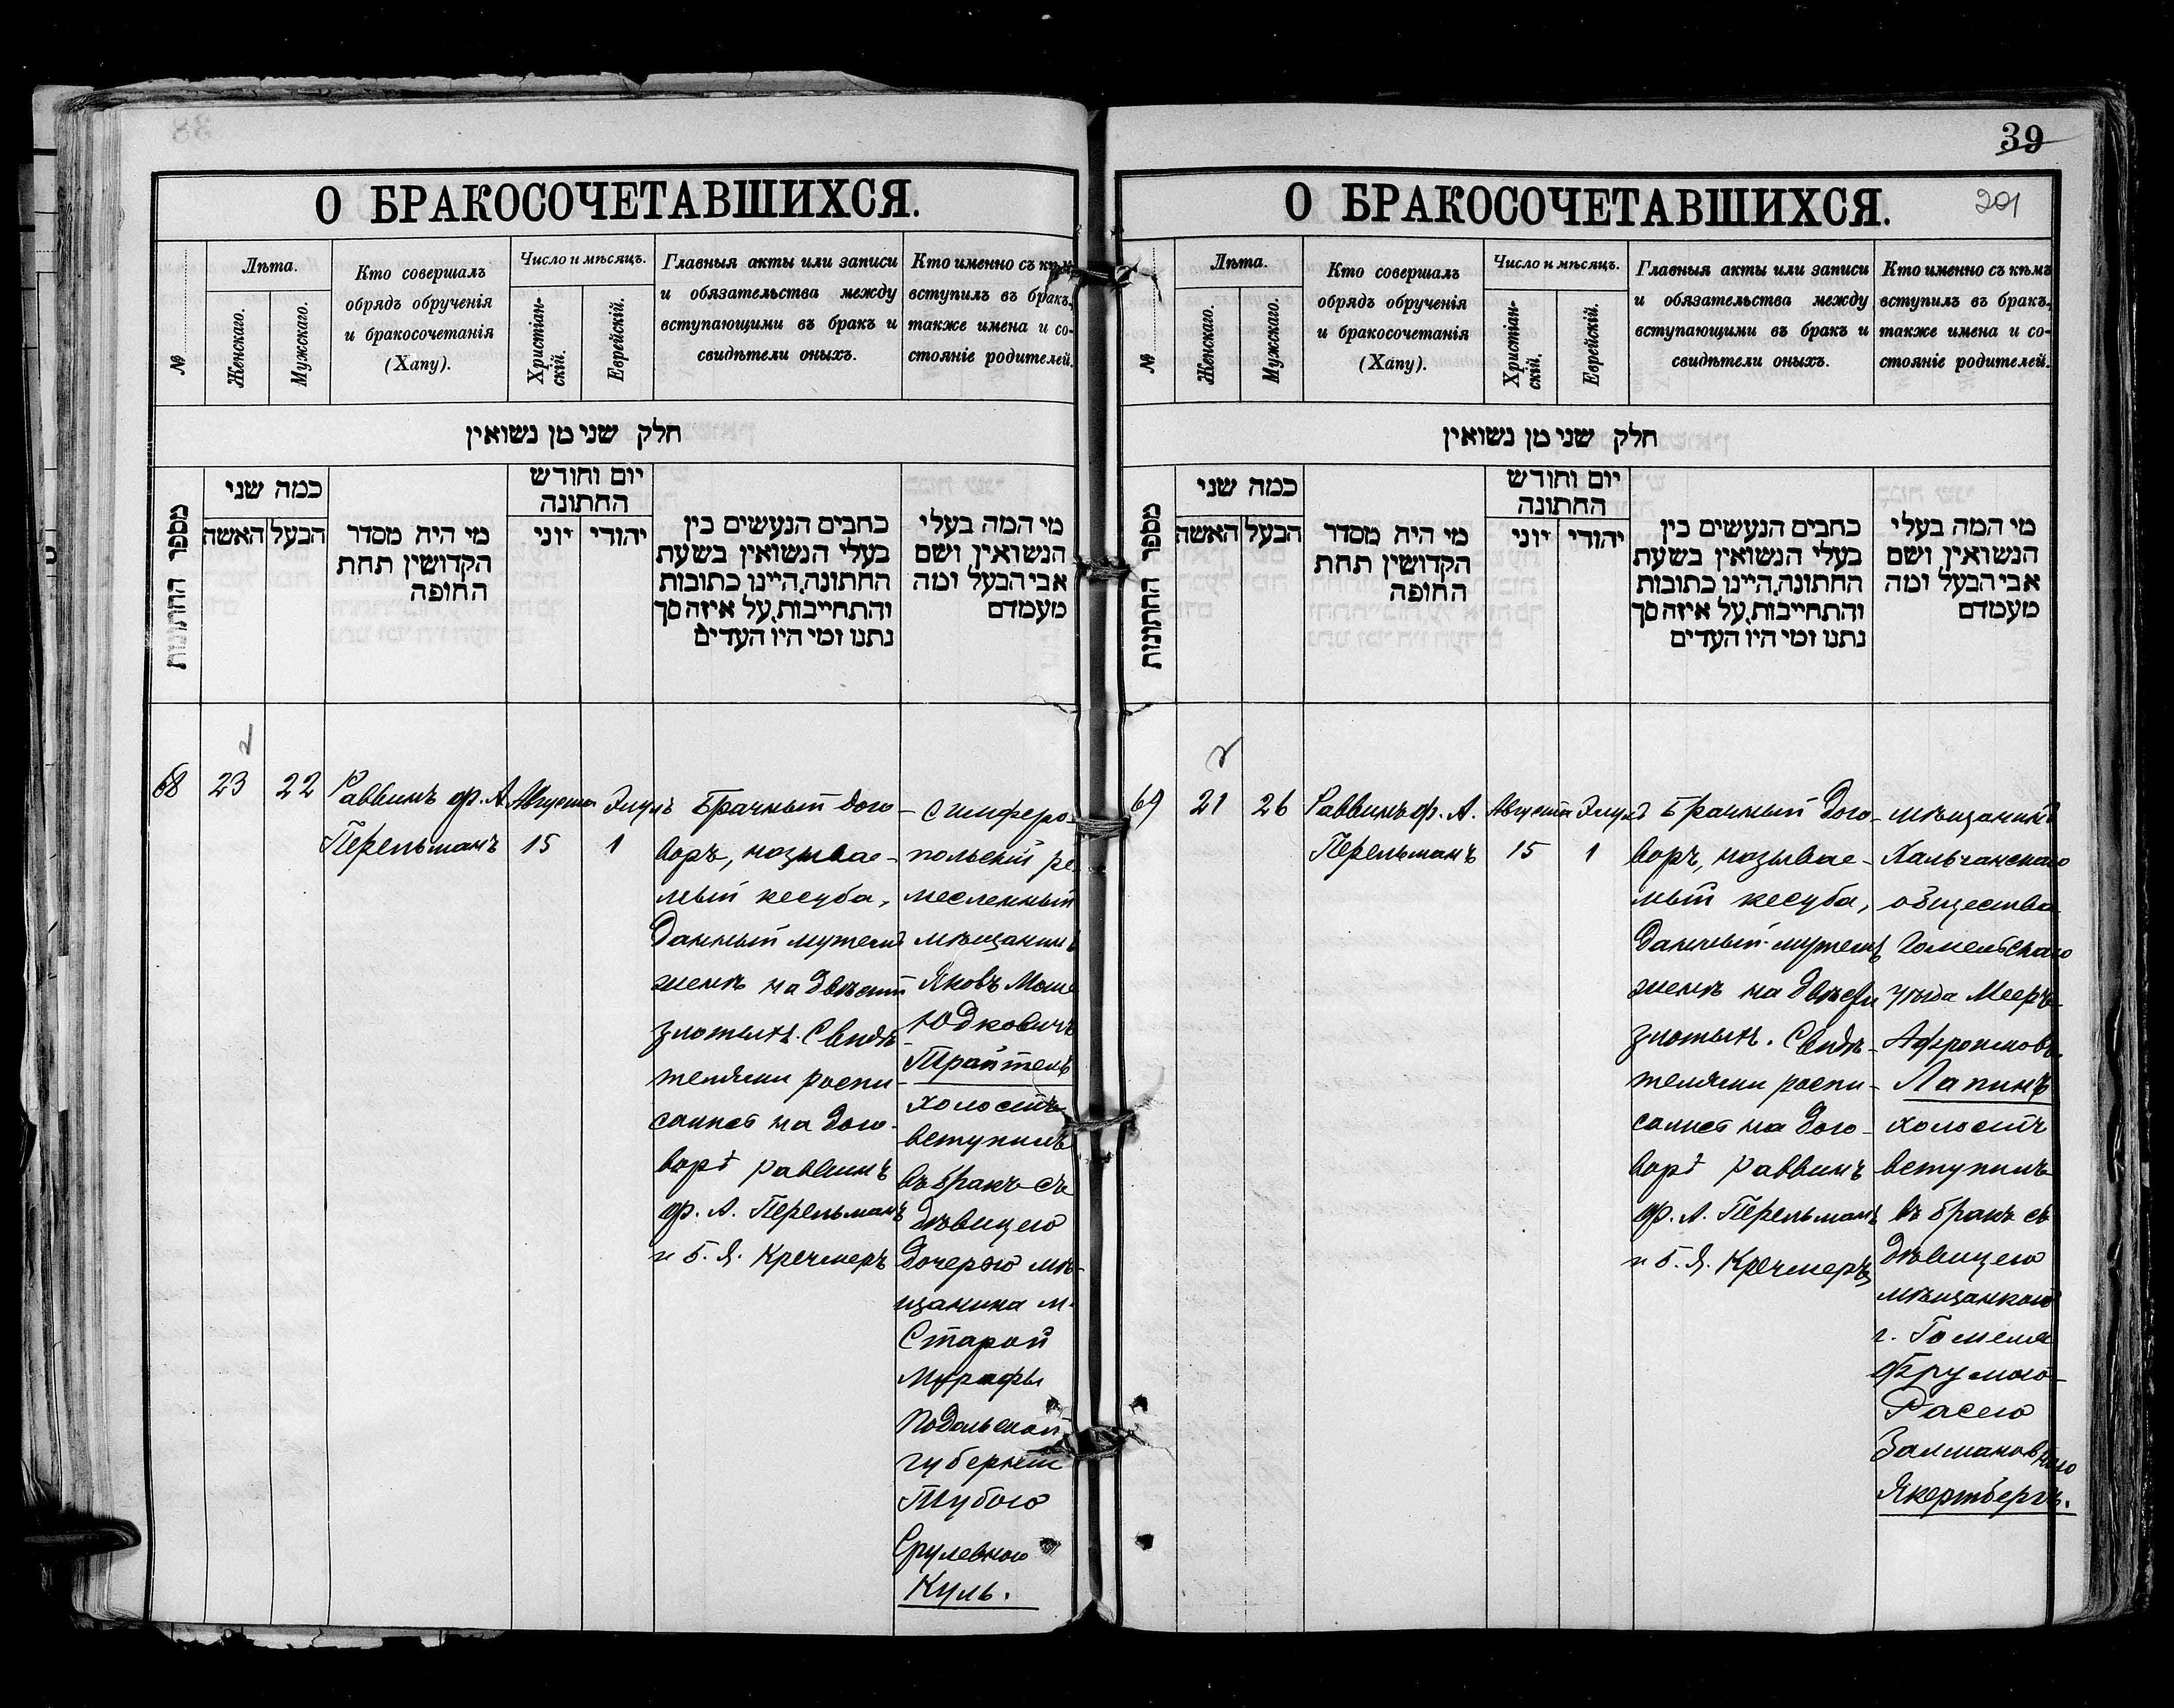 О БРАКОСОЧЕТАВШИХСЯ.
№
Лѣта.
Женскаго.
Мужскаго.
Кто совершалъ
обрядъ обрученія
и бракосочетанія
(Хапу).
Число и мѣсяцъ.
Христіан-
скій.
Еврейскій.
Главныя акты или записи
и обязательства между
вступающими въ бракъ и
свидѣтели оныхъ.
Кто именно съ кѣмъ
вступилъ въ бракъ,
также имена и со-
стояніе родителей.
חלק שני מן נשואין
מספר החתונות
כמה שני
האשה
הבעל
מי היה מסדר
הקדושין תחת
החופה
יום וחודש
החתונה
יוני
יהודי
כתבים הנעשים בין
בעלי הנשואין בשעת
החתונה, היינו כתובות
והתחייבות, על איזה סך
נתנו ומי היו העדים
מי המה בעלי
הנשואין ושם
אבי הבעל ומה
מעמדם
68
23
22
Раввинъ ф. А.
Перельманъ
Августа
15
Элулъ
1
Брачный дого-
воръ, называе-
мый кесуба,
данный мужемъ
женѣ на двѣсти
злотыхъ. Свидѣ-
телями роспи-
сались на дого-
ворѣ раввинъ
ф. А. Перельманъ
и Б. Я. Кречмеръ
Симферо-
польскій ре-
месленный
мѣщанинъ
Яковъ Моше
Юдковичъ
Трайтель
холостъ
вступилъ
въ бракъ съ
дѣвицею
дочерью мѣ-
щанина м.
Старой
Мурафы
Подольской
губерніи
Тубою
Срулевною
Куль.
39
201
О БРАКОСОЧЕТАВШИХСЯ.
№
Лѣта.
Женскаго.
Мужскаго.
Кто совершалъ
обрядъ обрученія
и бракосочетанія
(Хапу).
Число и мѣсяцъ.
Христіан-
скій.
Еврейскій.
Главныя акты или записи
и обязательства между
вступающими въ бракъ и
свидѣтели оныхъ.
Кто именно съ кѣмъ
вступилъ въ бракъ,
также имена и со-
стояніе родителей.
חלק שני מן נשואין
מספר החתונות
כמה שני
האשה
הבעל
מי היה מסדר
הקדושין תחת
החופה
יום וחודש
החתונה
יוני
יהודי
כתבים הנעשים בין
בעלי הנשואין בשעת
החתונה, היינו כתובות
והתחייבות, על איזה סך
נתנו ומי היו העדים
מי המה בעלי
הנשואין ושם
אבי הבעל ומה
מעמדם
69
21
26
Раввинъ ф. А.
Перельманъ
Августа
15
Элулъ
1
Брачный дого-
воръ, называе-
мый кесуба,
данный мужемъ
женѣ на двѣсти
злотыхъ. Свидѣ-
телями роспи-
сались на дого-
ворѣ раввинъ
ф. А. Перельманъ
и Б. Я. Кречмеръ
мѣщанинъ
Хальчанскаго
общества
Гомельскаго
уѣзда Мееръ
Афроимовъ
Лапинъ
холостъ
вступилъ
въ бракъ съ
дѣвицею
мѣщанкою
г. Гомеля
Фрумою-
Расею
Залмановною
Якертбергъ.